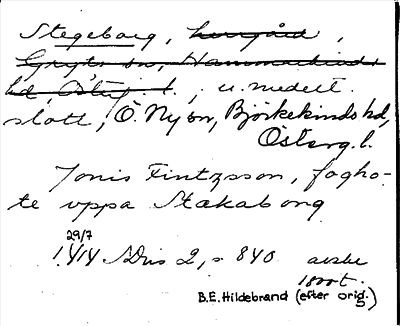 Stegeborg, herrgård,
Gryts sn, Hammarkinds
hd, Östg. l., u. medelt.
slott, Ö. Ny sn, Björkekinds hd,
Österg. l.
Jonis Fintzsson, fogho-
te uppa Stækaborg
29/7
1414 SDns 2, s 840 avskr
1800t.
B.E. Hildebrand (efter orig.)